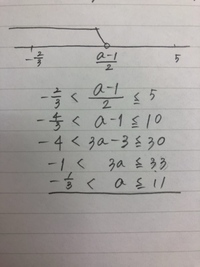 -2/3 (a-1)/2 5
-2/3 < (a-1)/2 ≦ 5
-4/3 < a-1 ≦ 10
-4 < 3a-3 ≦ 30
-1 < 3a ≦ 33
-1/3 < a ≦ 11